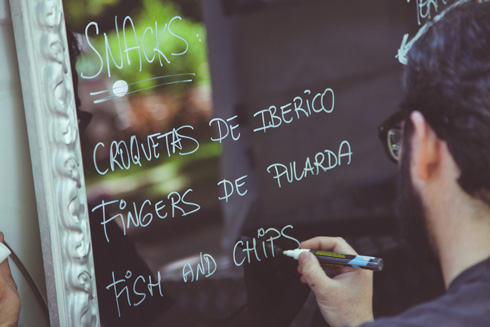 SNACKS:
CROQUETAS DE IBERICO
FINGERS DE PULARDA
FISH AND CHIPS